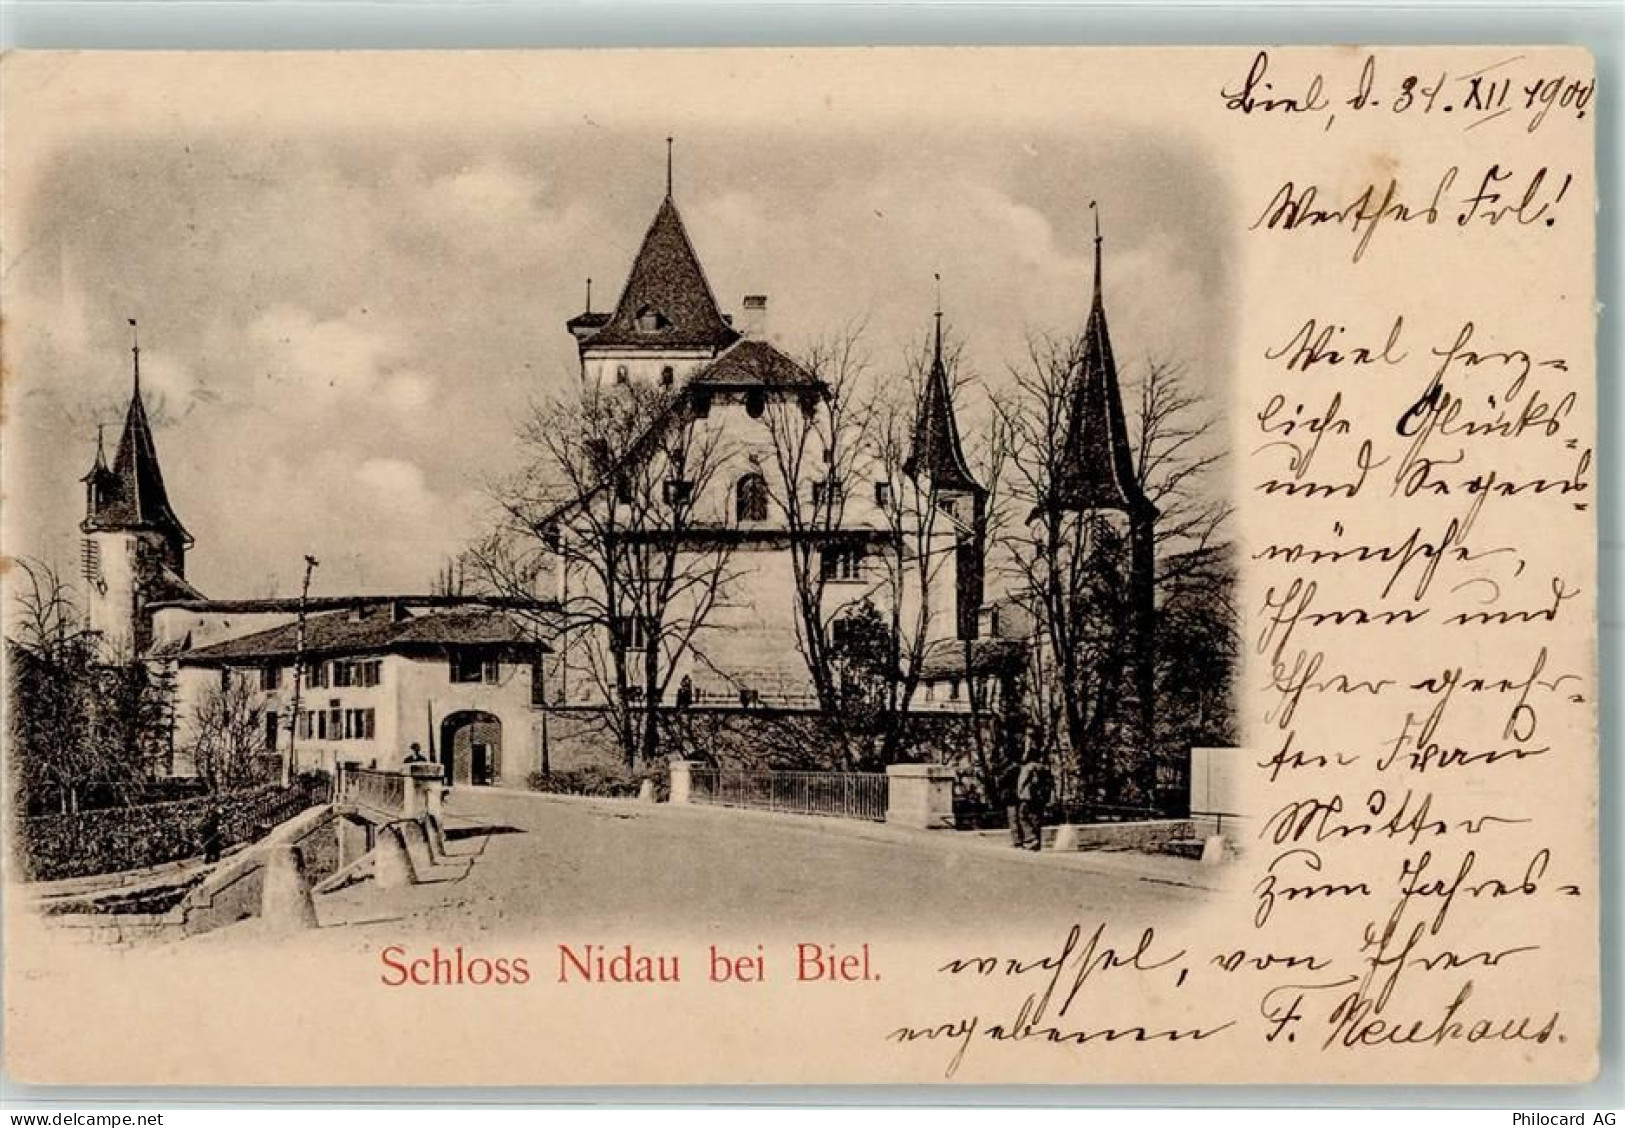 Biel, d. 31. XII 1900.
Werthes Frl!
Viel herz-
liche Glücks-
und Segens-
wünsche,
Ihnen und
Ihrer geehr-
ten Frau
Mutter
zum Jahres-
wechsel, von Ihrer
ergebenen F. Neuhaus.
Schloss Nidau bei Biel.
www.delcampe.net
Philocard AG